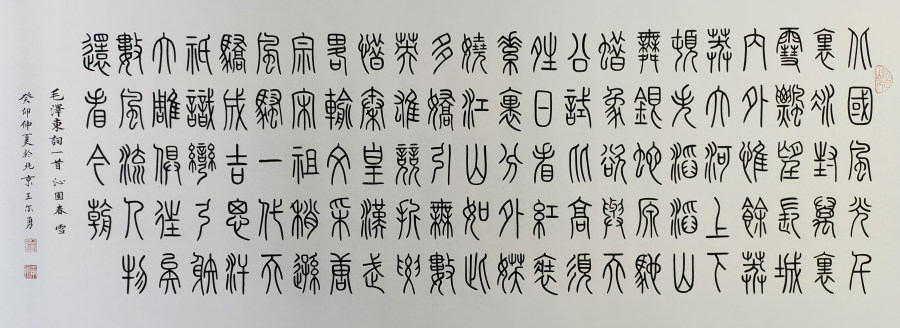 北國風光千
裏冰封萬裏
雪飄望長城
內外惟餘莽
莽大河上下
頓失滔滔山
舞銀蛇原馳
蠟象欲與天
公試比高須
晴日看紅裝
素裹分外妖
嬈江山如此
多嬌引無數
英雄競折腰
惜秦皇漢武
略輸文采唐
宗宋祖稍遜
風騷一代天
驕成吉思汗
祇識彎弓射
大雕俱往矣
數風流人物
還看今朝
毛澤東詞一首 沁園春 雪
癸卯仲夏於北京王